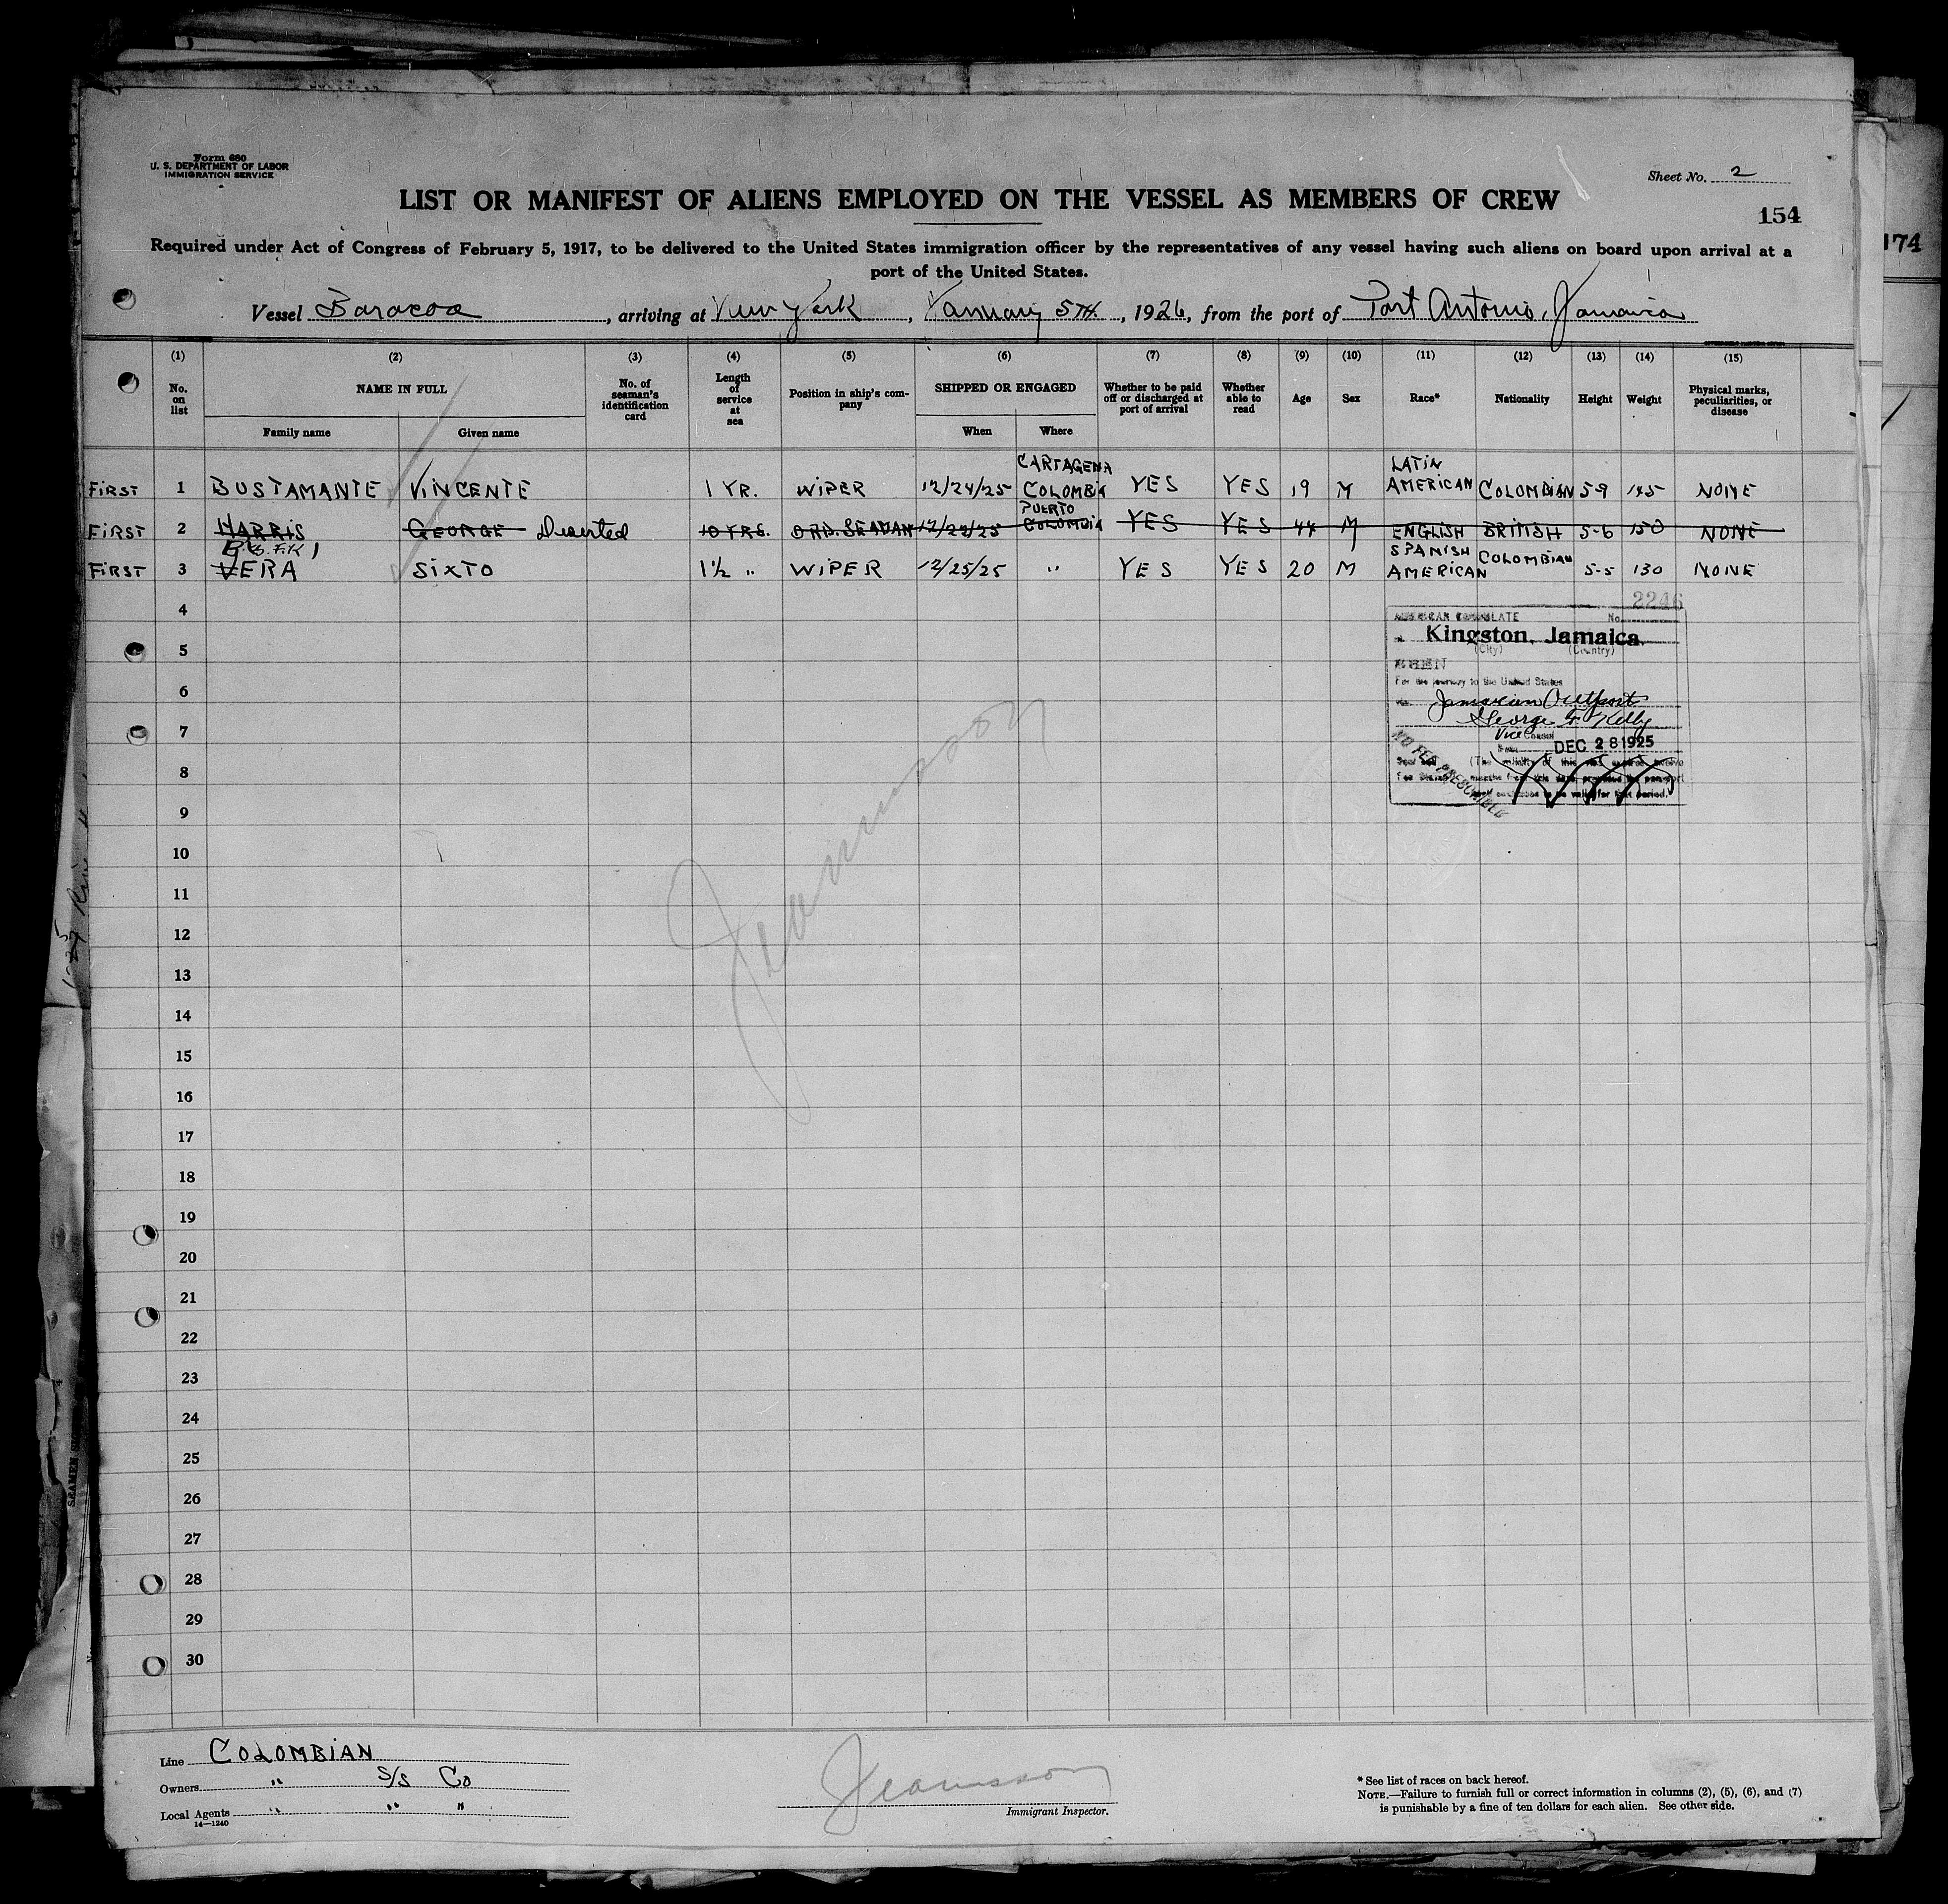 Form 680
U. S. DEPARTMENT OF LABOR
IMMIGRATION SERVICE
Sheet No. 2
LIST OR MANIFEST OF ALIENS EMPLOYED ON THE VESSEL AS MEMBERS OF CREW
154
174
Required under Act of Congress of February 5, 1917, to be delivered to the United States immigration officer by the representatives of any vessel having such aliens on board upon arrival at a
port of the United States.
Vessel Baracoa, arriving at New York, January 5TH, 1926, from the port of Port Antonio, Jamaica
(1) (2) (3) (4) (5) (6) (7) (8) (9) (10) (11) (12) (13) (14) (15)
No. on list NAME IN FULL Family name Given name No. of seaman's identification card Length of service at sea Position in ship's company SHIPPED OR ENGAGED When Where Whether to be paid off or discharged at port of arrival Whether able to read Age Sex Race* Nationality Height Weight Physical marks, peculiarities, or disease
FIRST 1 BUSTAMANTE VINCENTE 1 YR. WIPER 12/24/25 CARTAGENA COLOMBIA YES YES 19 M LATIN AMERICAN COLOMBIAN 5-9 145 NONE
FIRST 2 HARRIS GEORGE Deserted 10 YRS. ORD. SEAMAN 12/22/25 PUERTO COLOMBIA YES YES 44 M ENGLISH BRITISH 5-6 150 NONE
FIRST 3 VERA SIXTO 1½ " WIPER 12/25/25 " YES YES 20 M SPANISH AMERICAN COLOMBIAN 5-5 130 NONE
4
5
6
7
8
9
10
11
12
13
14
15
16
17
18
19
20
21
22
23
24
25
26
27
28
29
30
2246
AMERICAN CONSULATE No.
Kingston, Jamaica.
(City) (Country)
SEEN
For the journey to the United States
Jamaican Outport
George F. Kelly
Vice Consul
DEC 28 1925
NO FEE PRESCRIBED
Line COLOMBIAN
Owners " S/S Co
Local Agents " " "
14—1240
Immigrant Inspector.
* See list of races on back hereof.
NOTE.—Failure to furnish full or correct information in columns (2), (5), (6), and (7)
is punishable by a fine of ten dollars for each alien. See other side.